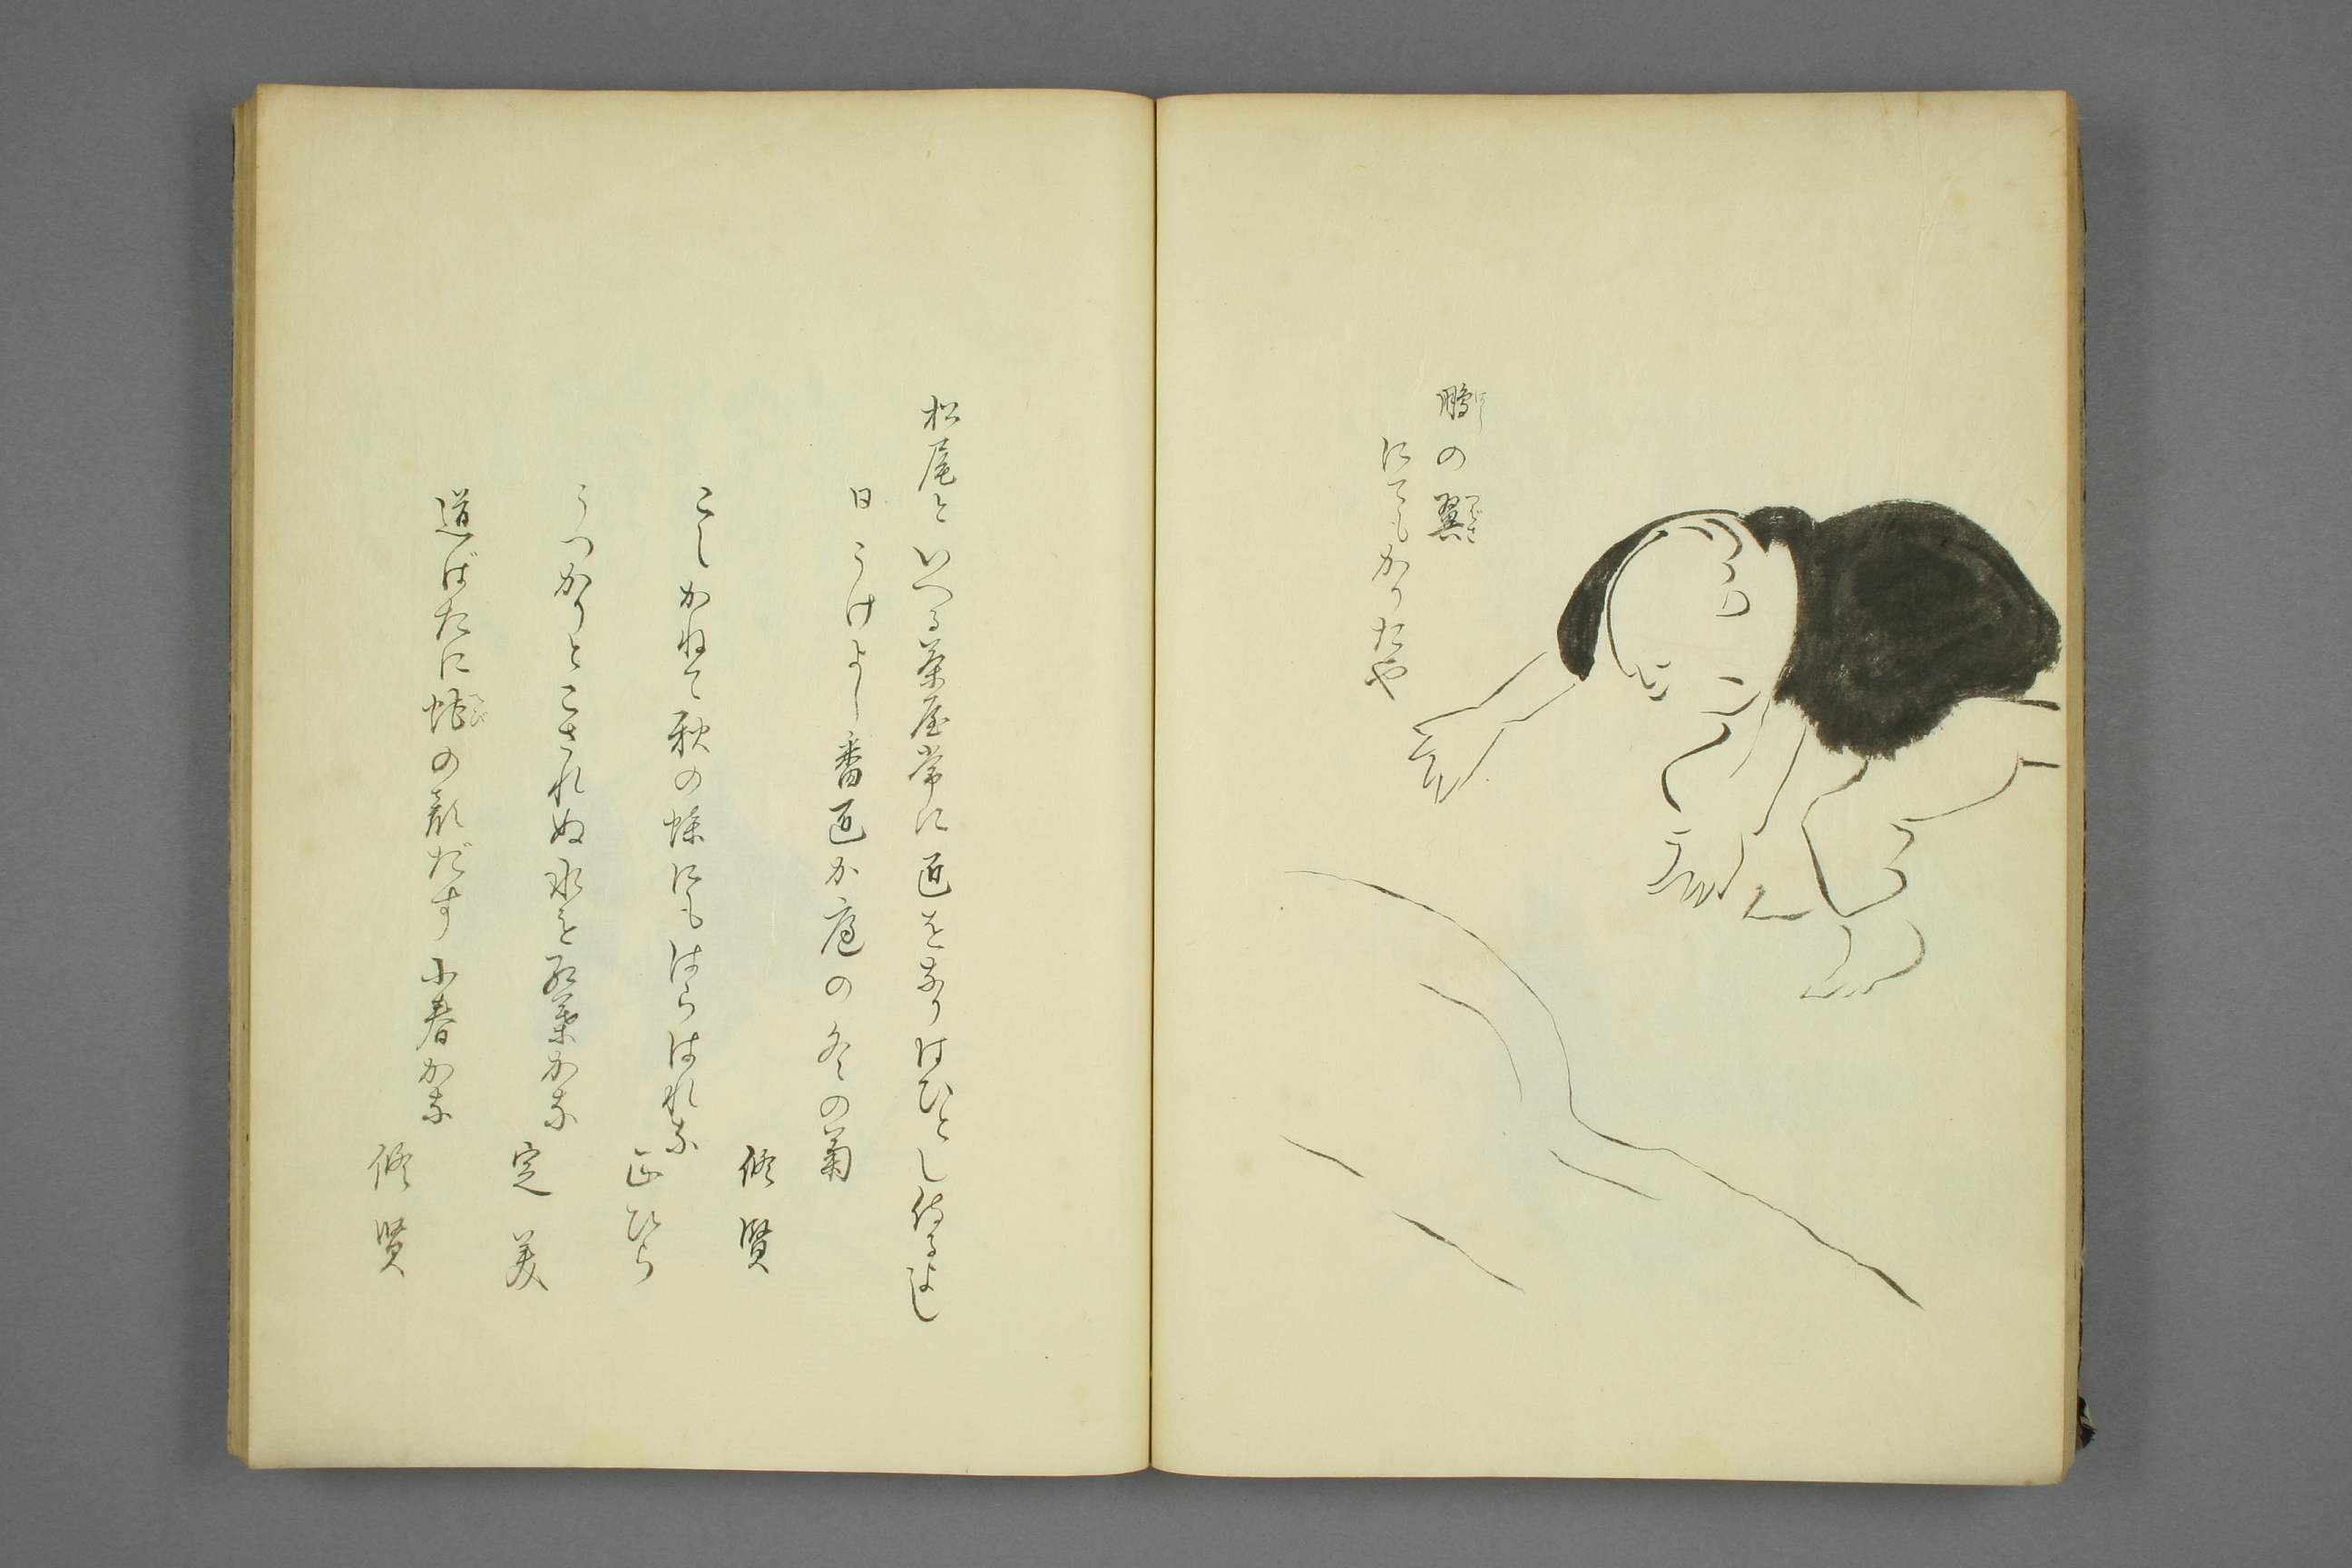 鵬の翼
にてもかりたや
松尾といへる茶屋常に匠をなりはひとし侍るよし
日うけよし番匠か庭の冬の菊
修賢
こしかねて秋の蝶にもはらはれな
正ひら
うつかりとこされぬ水を紅葉かな
定美
道ばたに蛇の顔だす小春かな
修賢